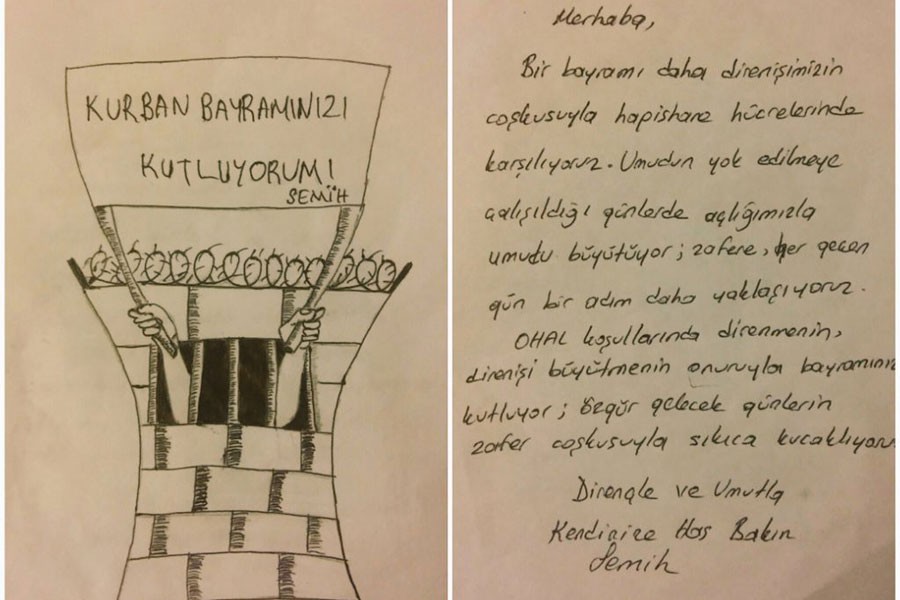 KURBAN BAYRAMINIZI
KUTLUYORUM!
SEMİH
Merhaba,
Bir bayramı daha direnişimizin
coşkusuyla hapishane hücrelerinde
karşılıyoruz. Umudun yok edilmeye
çalışıldığı günlerde açlığımızla
umudu büyütüyor; zafere, her geçen
gün bir adım daha yaklaşıyoruz.
OHAL koşullarında direnmenin,
direnişi büyütmenin onuruyla bayramınız
kutluyor; özgür gelecek günlerin
zafer coşkusuyla sıkıca kucaklıyoru
Dirençle ve Umutla
Kendinize Hoş Bakın
Semih